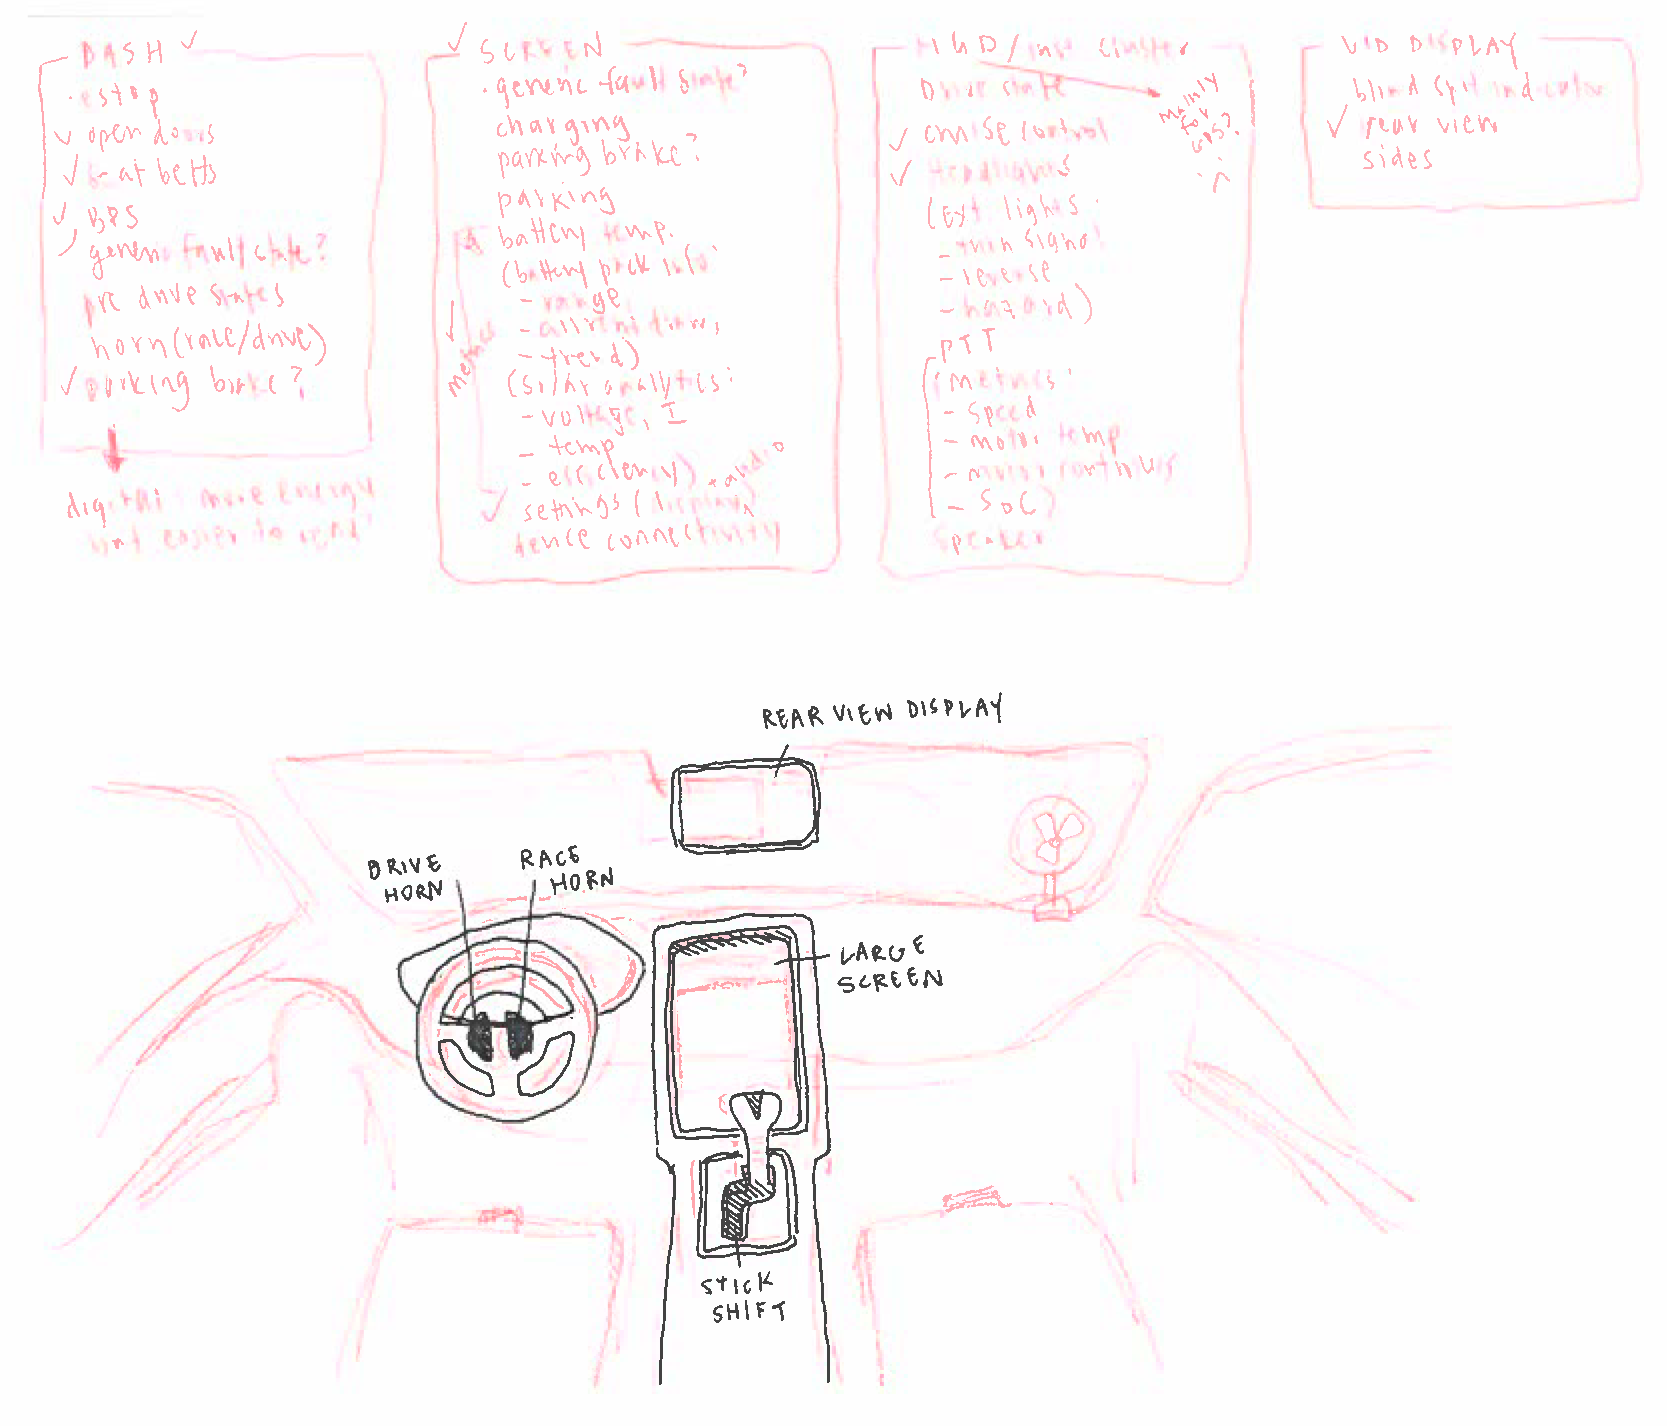 DASH ✓
• estop
✓ open doors
✓ seat belts
✓ BPS
generic fault state?
pre drive states
horn (race/drive)
✓ parking brake?
digital: more energy
but easier to read
✓ SCREEN
• generic fault state?
charging
parking brake?
parking
battery temp.
(battery pack info:
- range,
- current draw,
- trend)
(solar analytics:
- voltage, I
- temp
- efficiency)
+ audio
✓ settings (display)
connectivity
metrics
HUD / inst cluster
Drive state
Mainly
for
✓ cruise control
✓ Headlights
(Ext. lights:
- turn signal
- reverse
- hazard)
PTT
(Metrics:
- speed
- motor temp
- motor controller
- SoC)
Speaker
VID DISPLAY
blind spot indicator
✓ rear view
sides
REAR VIEW DISPLAY
DRIVE
HORN
RACE
HORN
LARGE
SCREEN
STICK
SHIFT